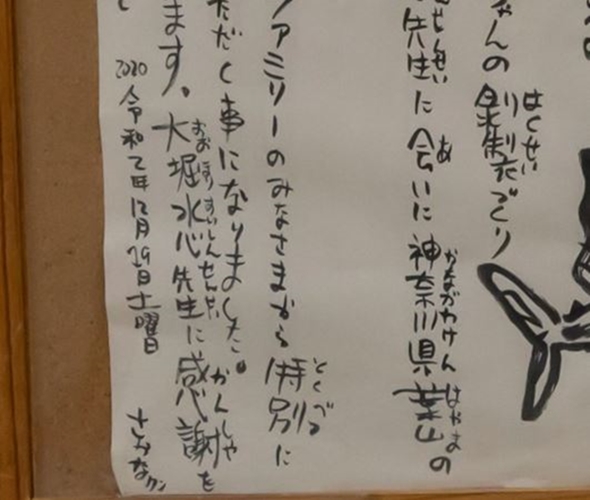 はくせい
ゃんの剥製づくり
せんせい あ かながわけん はやまの
先生に会いに神奈川県葉山の
とくべつ
ァミリーのみなさまから特別に
ただく事になりました。
おおほりすいしんせんせい かんしゃ
ます。大堀水心先生に感謝を
2020令和2年12月19日土曜日 さかなクン